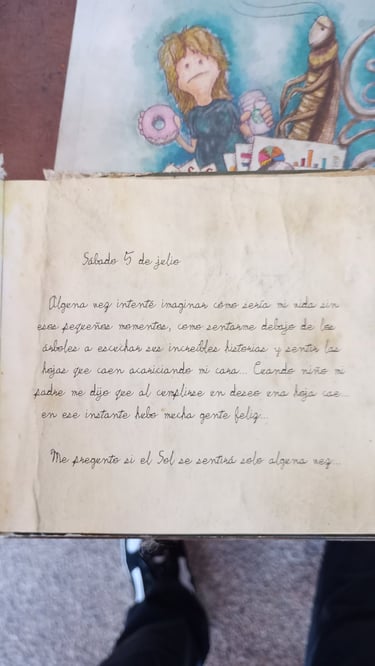 Sábado 5 de julio
Alguna vez intenté imaginar cómo sería mi vida sin
esos pequeños momentos, como sentarme debajo de los
árboles a escuchar sus increíbles historias y sentir las
hojas que caen acariciando mi cara... Cuando niño mi
padre me dijo que al cumplirse un deseo una hoja cae...
en ese instante hubo mucha gente feliz...
Me pregunto si el Sol se sentirá solo alguna vez...